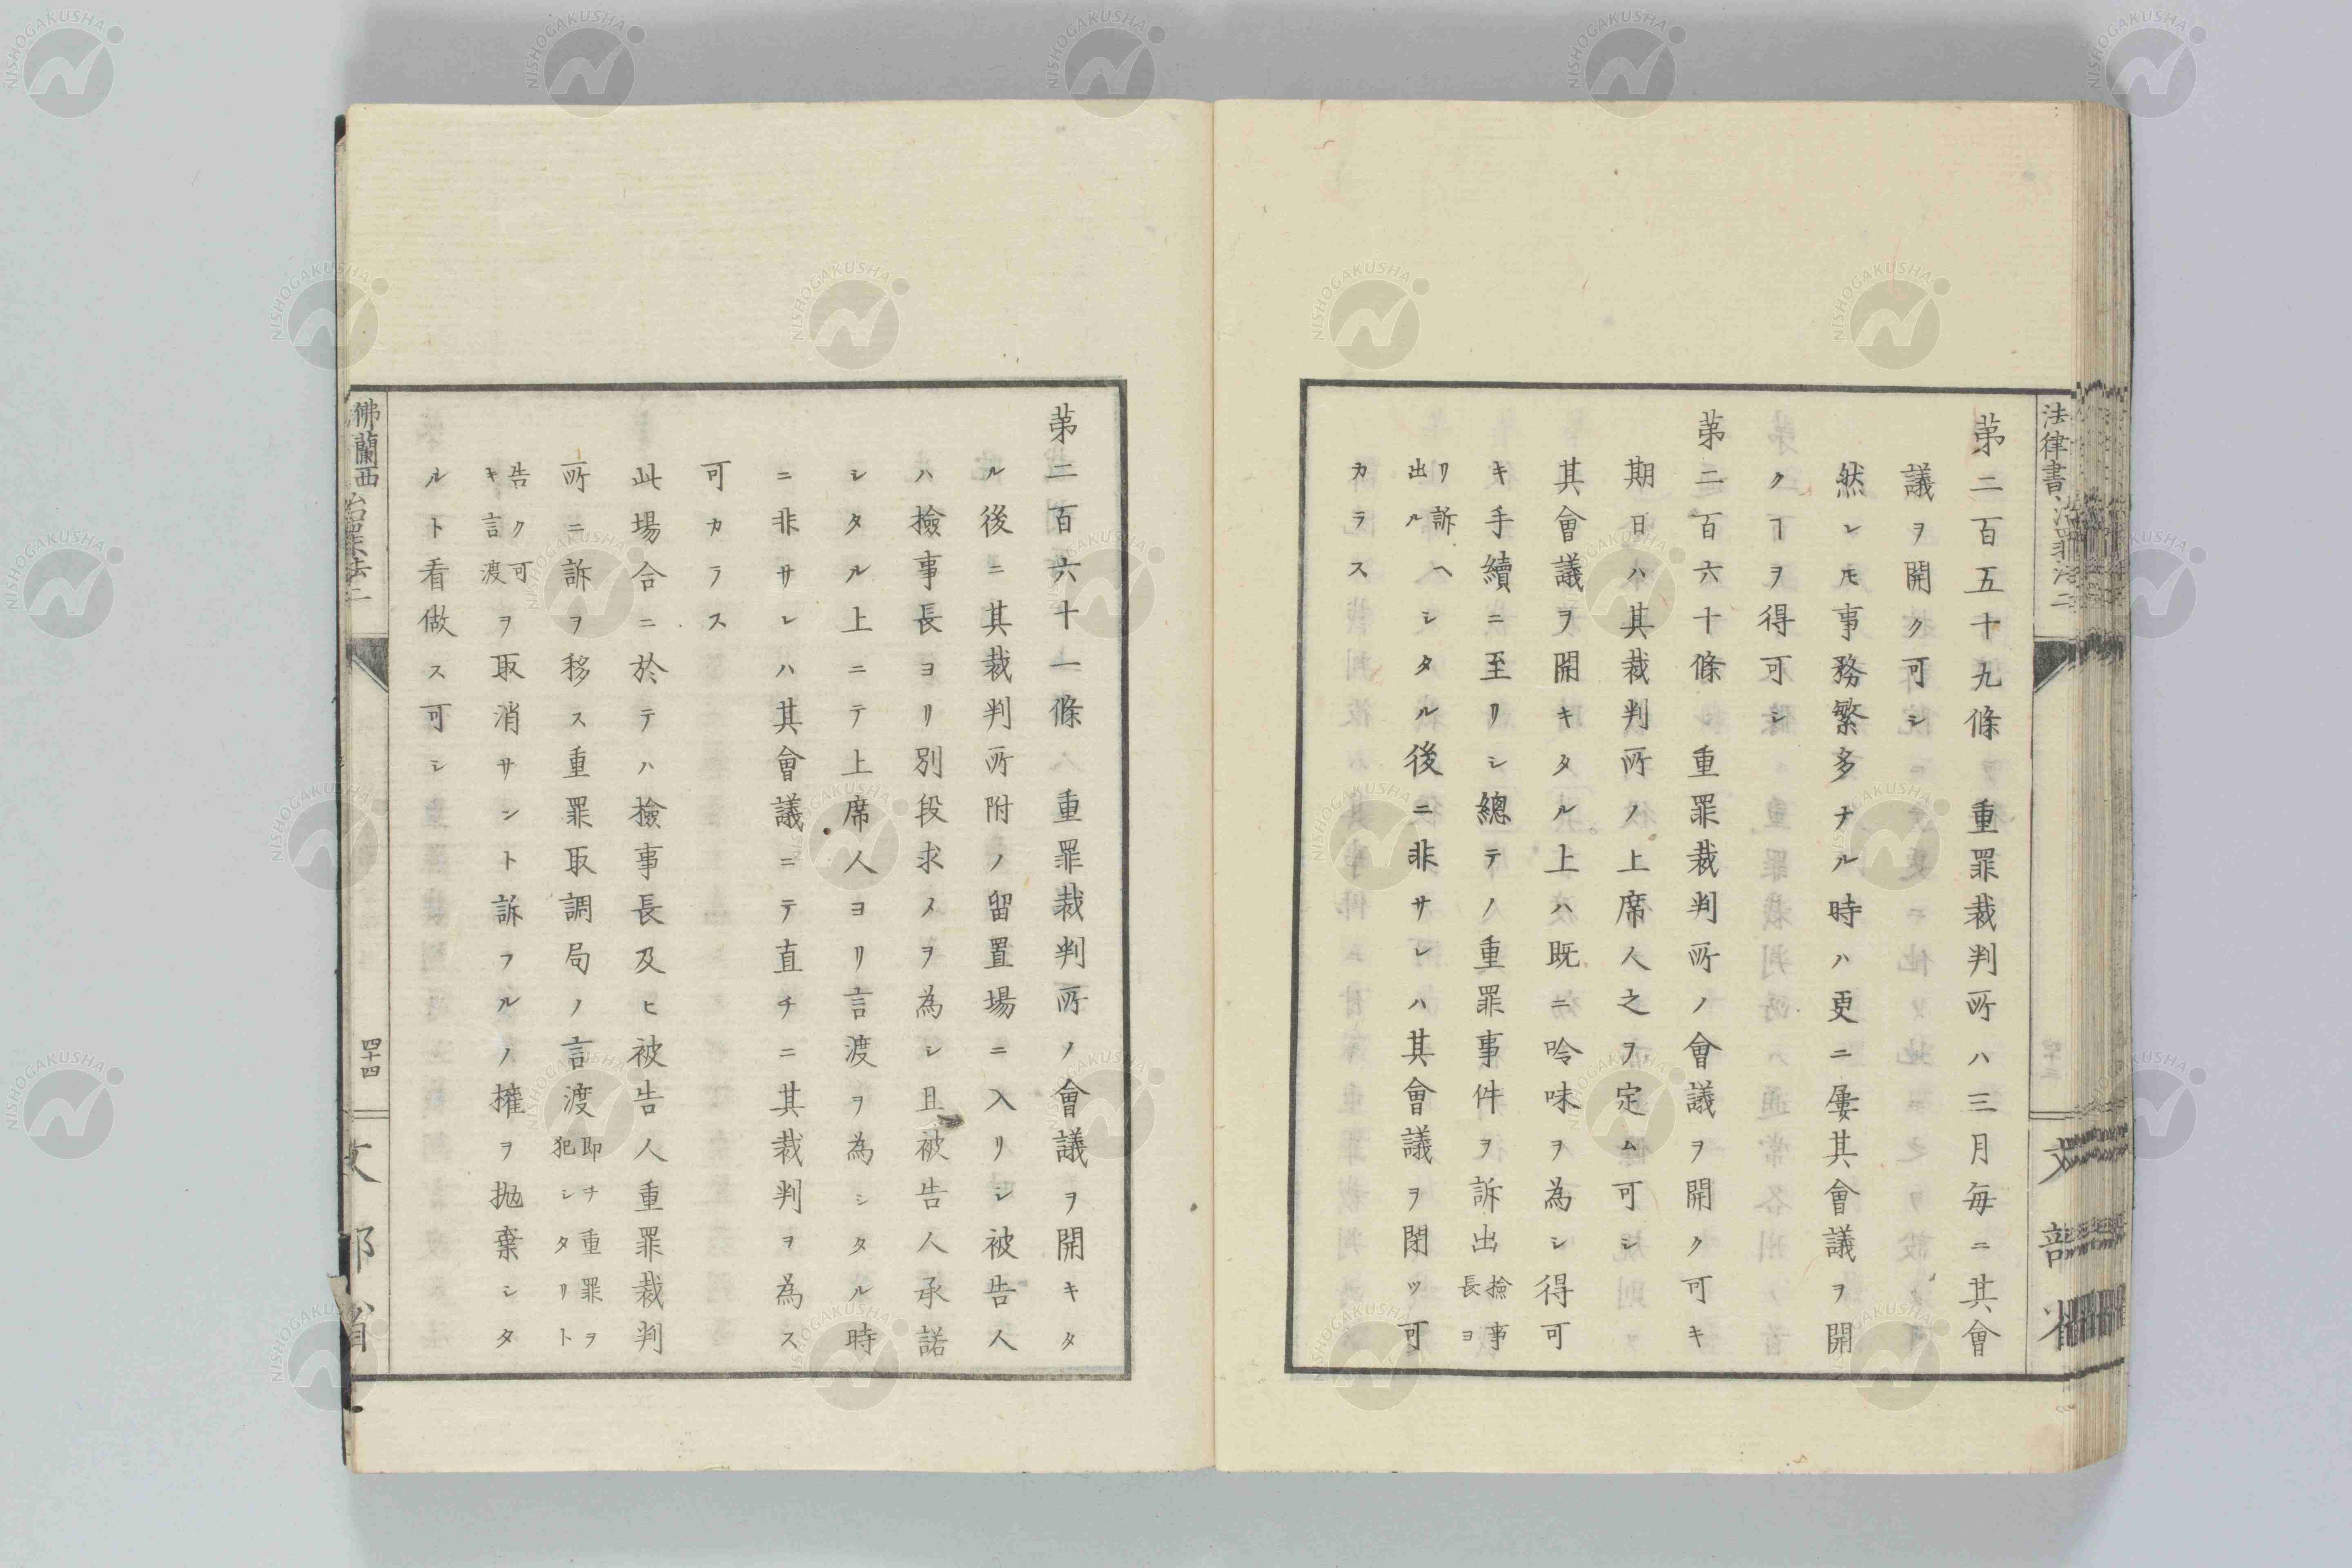 法律書 治罪法二
文部省
第二百五十九條 重罪裁判所ハ三月每ニ其會
議ヲ開ク可シ
然レ𪜈事務繁多ナル時ハ更ニ屢其會議ヲ開
クヿヲ得可シ
第二百六十條 重罪裁判所ノ會議ヲ開ク可キ
期日ハ其裁判所ノ上席人之ヲ定ム可シ
其會議ヲ開キタル上ハ既ニ吟味ヲ為シ得可
キ手續ニ至リシ總テノ重罪事件ヲ訴出檢事長ヨ
リ訴ヘ出ルシタル後ニ非サレハ其會議ヲ閉ツ可
カラス
第二百六十一條 重罪裁判所ノ會議ヲ開キタ
ル後ニ其裁判所附ノ留置場ニ入リシ被告人
ハ檢事長ヨリ別段求メヲ為シ且被告人承諾
シタル上ニテ上席人ヨリ言渡ヲ為シタル時
ニ非サレハ其會議ニテ直チニ其裁判ヲ為ス
可カラス
此場合ニ於テハ檢事長及ヒ被告人重罪裁判
所ニ訴ヲ移ス重罪取調局ノ言渡即チ重罪ヲ犯シタリト
告ク可キ言渡ヲ取消サント訴フルノ權ヲ抛棄シタ
ルト看做ス可シ
佛蘭西治罪法二
四十四
文部省
NISHOGAKUSHA